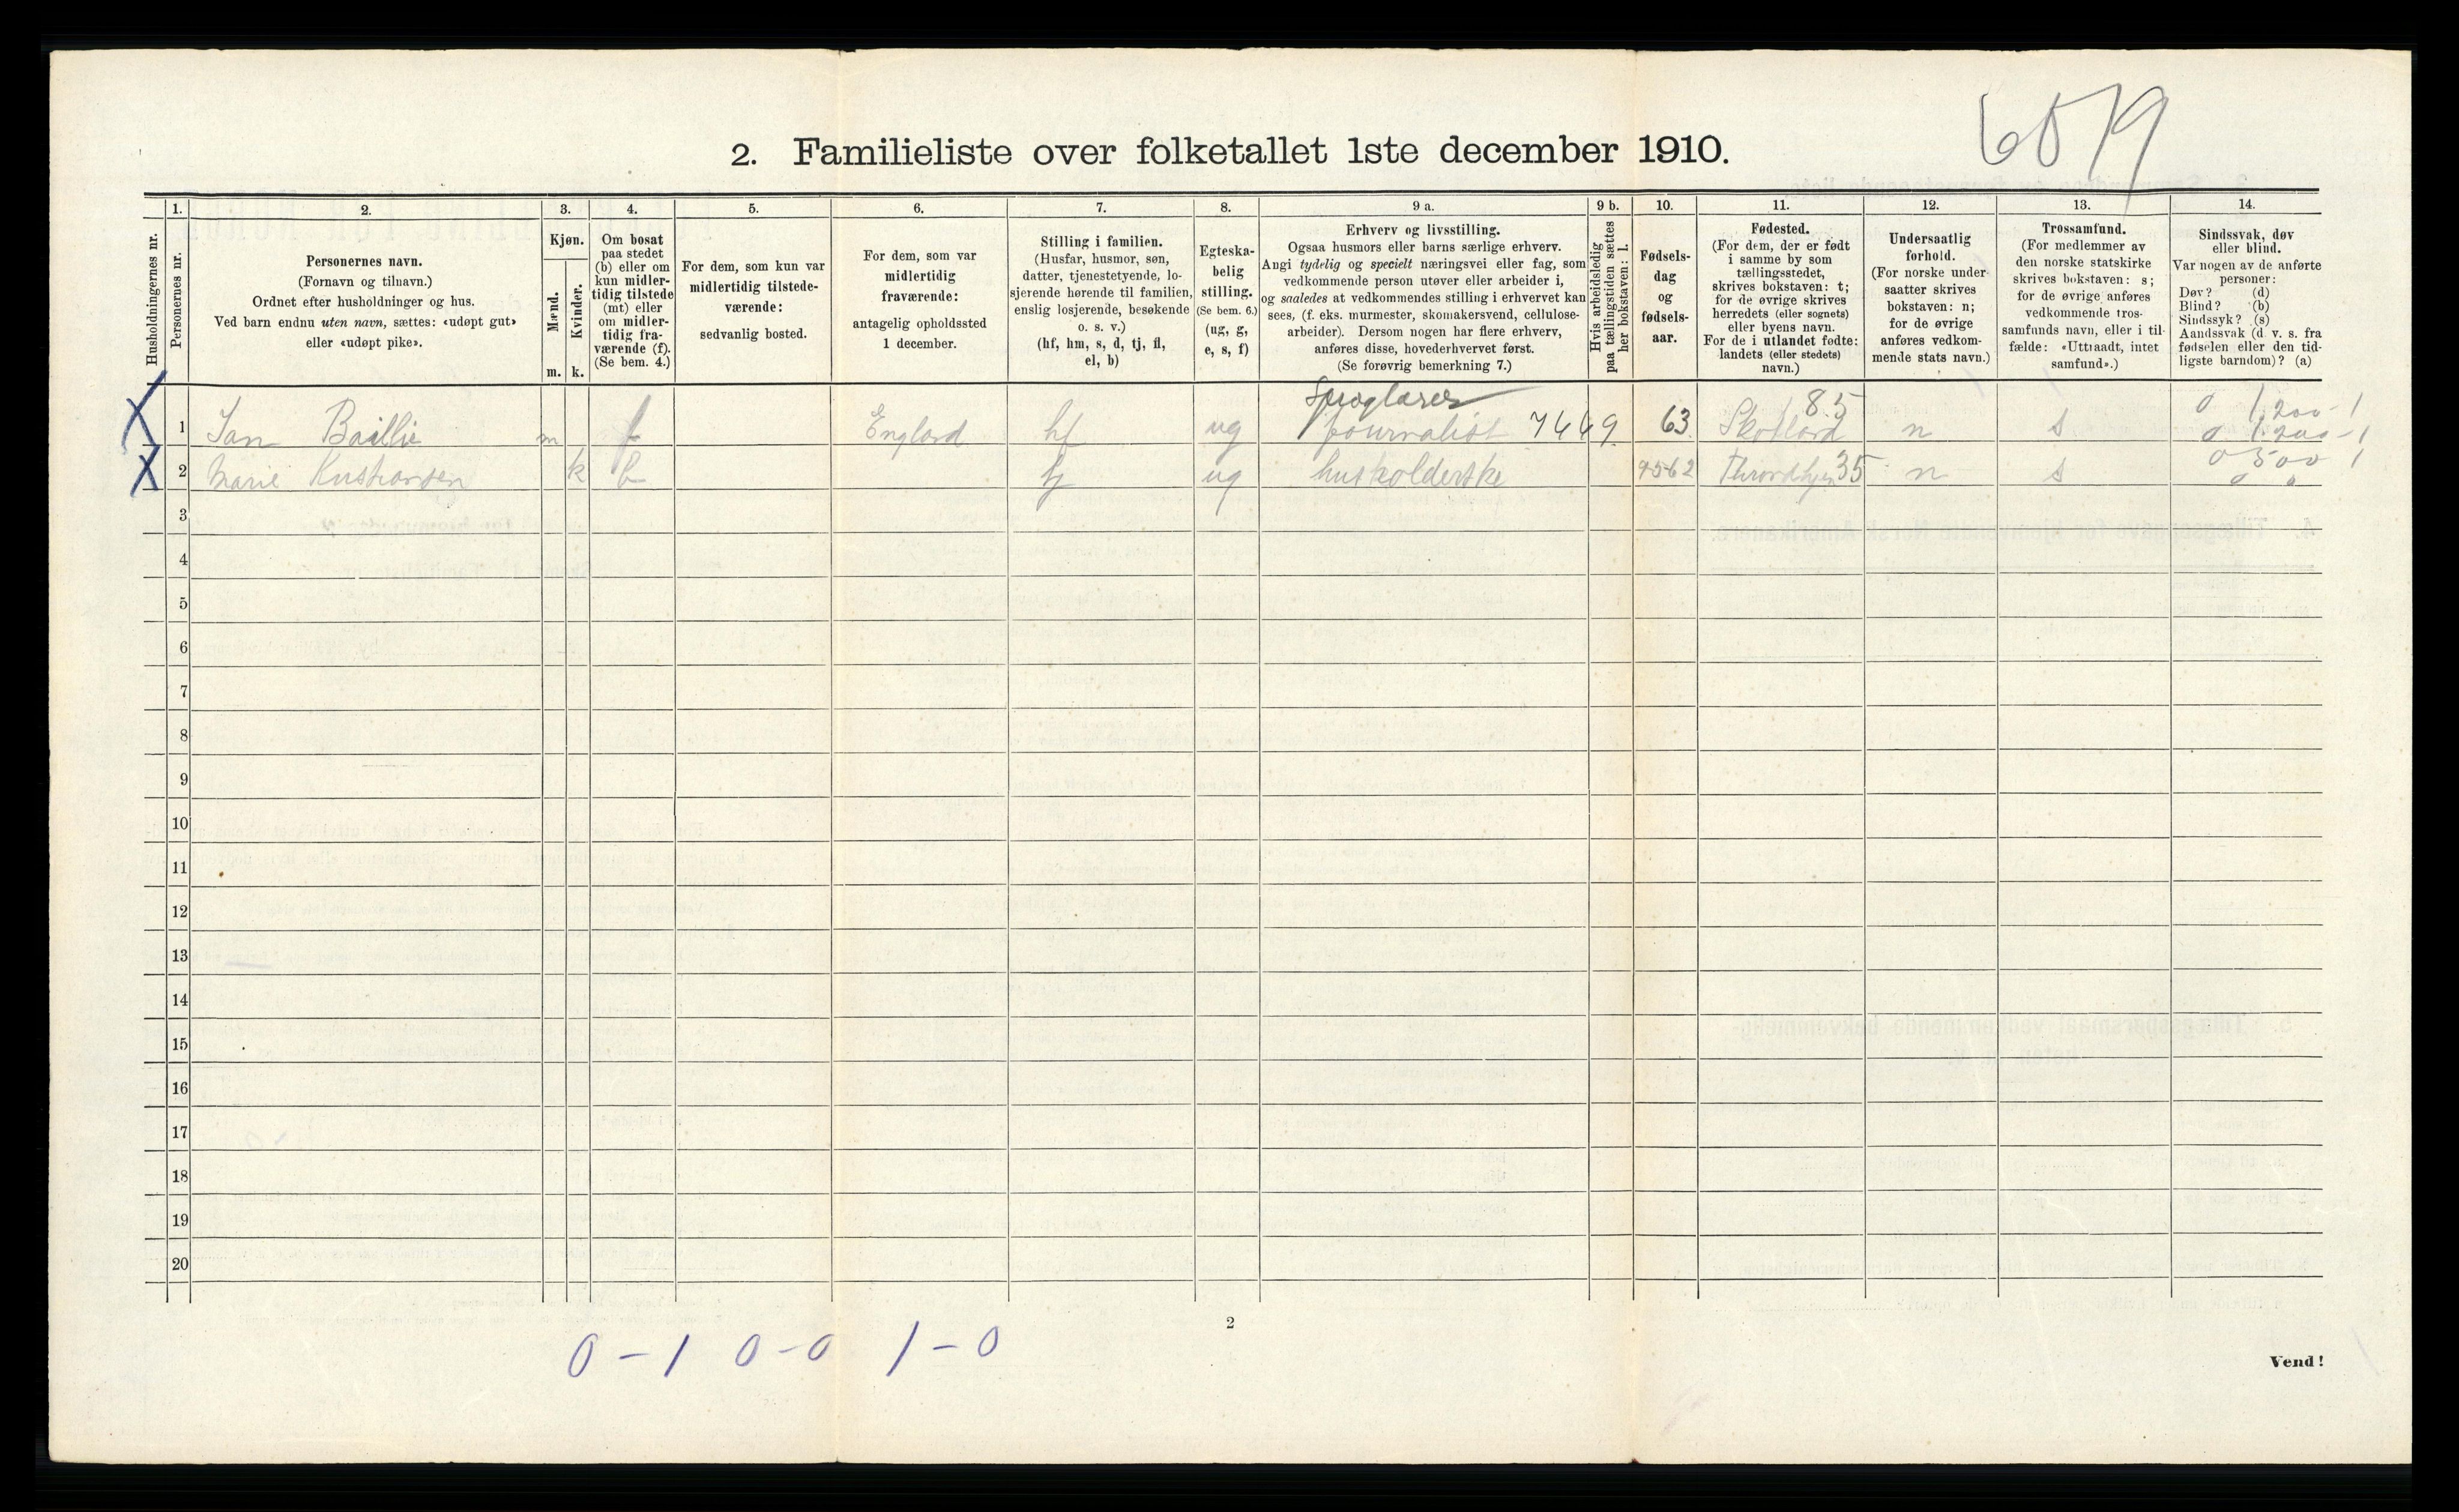 6579
2. Familieliste over folketallet 1ste december 1910.
Husholdningernes nr.
1.
Personernes nr.
2.
Personernes navn.
(Fornavn og tilnavn.)
Ordnet efter husholdninger og hus.
Ved barn endnu uten navn, sættes: «udøpt gut»
eller «udøpt pike».
3.
Kjøn.
Mænd.
Kvinder.
m. k.
4.
Om bosat
paa stedet
(b) eller om
kun midler-
tidig tilstede
(mt) eller
om midler-
tidig fra-
værende (f).
(Se bem. 4.)
5.
For dem, som kun var
midlertidig tilstede-
værende:
sedvanlig bosted.
6.
For dem, som var
midlertidig
fraværende:
antagelig opholdssted
1 december.
7.
Stilling i familien.
(Husfar, husmor, søn,
datter, tjenestetyende, lo-
sjerende hørende til familien,
enslig losjerende, besøkende
o. s. v.)
(hf, hm, s, d, tj, fl,
el, b)
8.
Egteska-
belig
stilling.
(Se bem. 6.)
(ug, g,
e, s, f)
9 a.
Erhverv og livsstilling.
Ogsaa husmors eller barns særlige erhverv.
Angi tydelig og specielt næringsvei eller fag, som
vedkommende person utøver eller arbeider i,
og saaledes at vedkommendes stilling i erhvervet kan
sees, (f. eks. murmester, skomakersvend, cellulose-
arbeider). Dersom nogen har flere erhverv,
anføres disse, hovederhvervet først.
(Se forøvrig bemerkning 7.)
9 b.
Hvis arbeidsledig
paa tællingstiden sættes
her bokstaven: l.
10.
Fødsels-
dag
og
fødsels-
aar.
11.
Fødested.
(For dem, der er født
i samme by som
tællingsstedet,
skrives bokstaven: t;
for de øvrige skrives
herredets (eller sognets)
eller byens navn.
For de i utlandet fødte:
landets (eller stedets)
navn.)
12.
Undersaatlig
forhold.
(For norske under-
saatter skrives
bokstaven: n;
for de øvrige
anføres vedkom-
mende stats navn.)
13.
Trossamfund.
(For medlemmer av
den norske statskirke
skrives bokstaven: s;
for de øvrige anføres
vedkommende tros-
samfunds navn, eller i til-
fælde: «Uttraadt, intet
samfund».)
14.
Sindssvak, døv
eller blind.
Var nogen av de anførte
personer:
Døv? (d)
Blind? (b)
Sindssyk? (s)
Aandssvak (d. v. s. fra
fødselen eller den tid-
ligste barndom)? (a)
Sproglærer 85 0 1.200-1
1 Ian Baillie m f England hf ug Journalist 7449 63 Skotland n s 0 1.200-1
2 Marie Kristiansen k b tj ug husholderske 9-5-62 Throndhjem 35 n s 0 500 1
0 0
3
4
5
6
7
8
9
10
11
12
13
14
15
16
17
18
19
20
2
0-1 0-0 1-0
Vend!